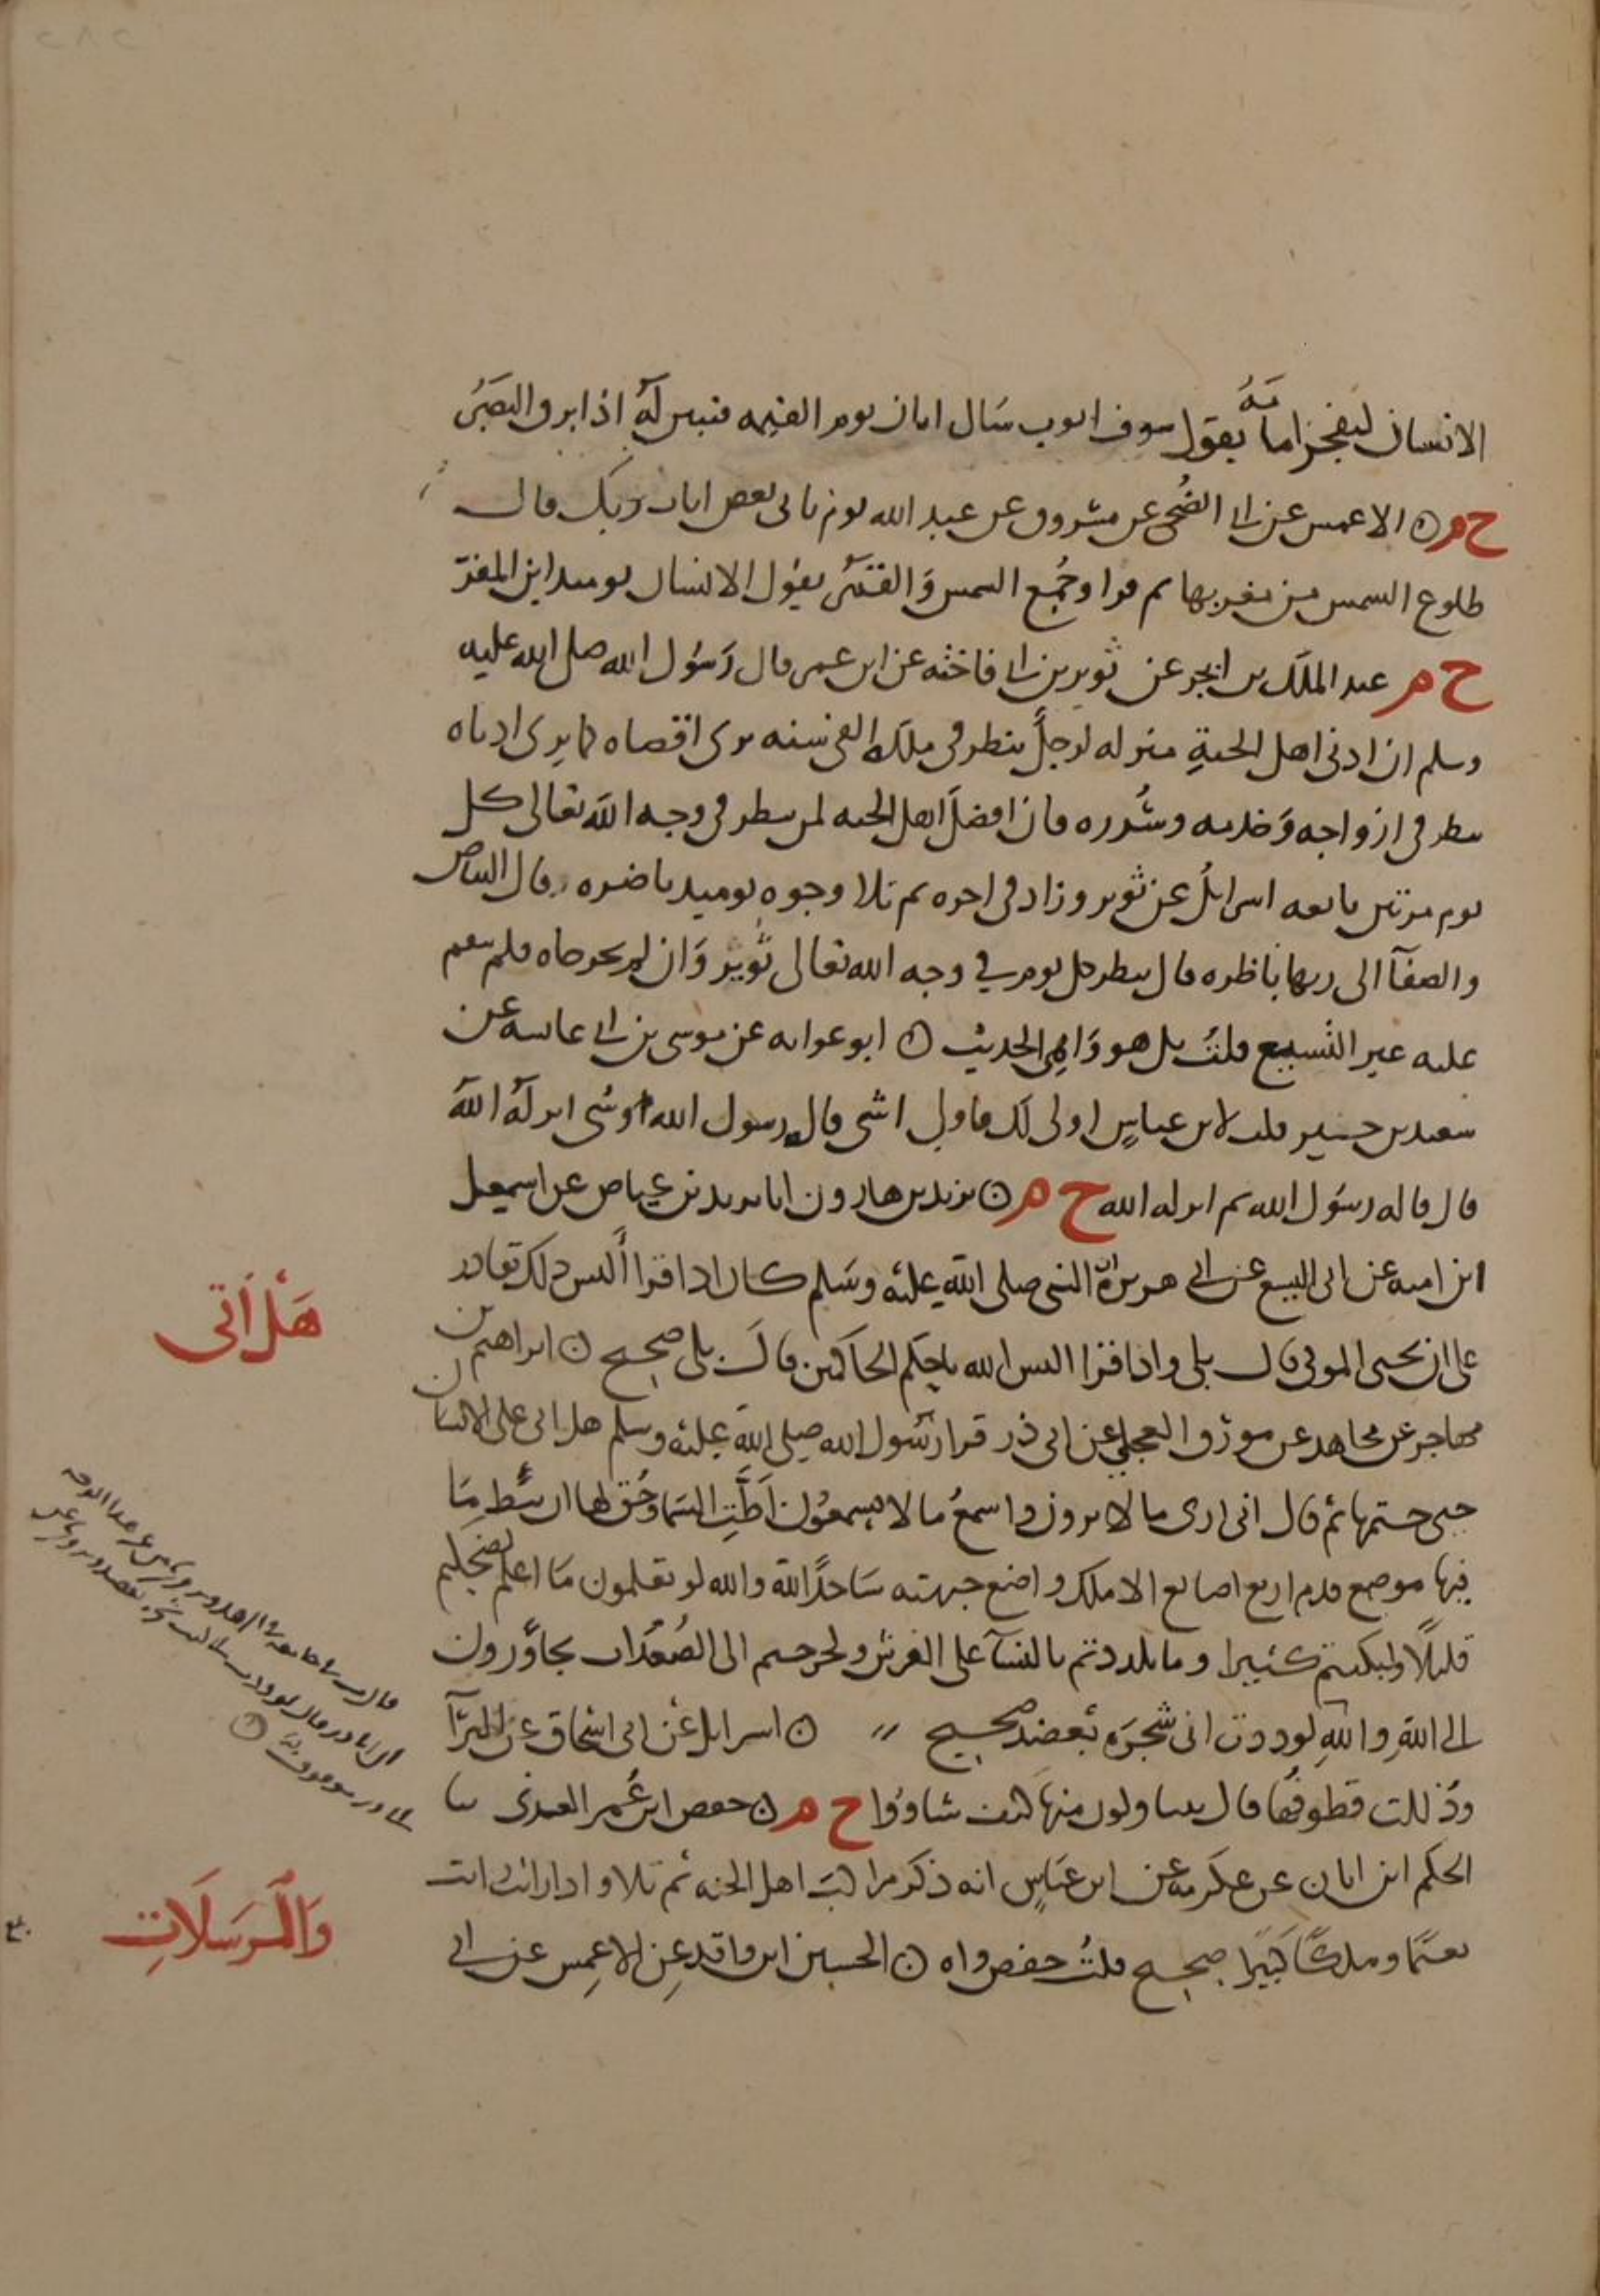 الانسان ليفجر امامه يقول سوف اتوب يسال ايان يوم القيمه فتبين له اذا برق البصر
خ م ۞ الاعمش عن ابي الضحى عن مسروق عن عبد الله يوم ياتي بعض ايات ربك قال
طلوع الشمس من مغربها ثم قرا وجمع الشمس والقمر يقول الانسان يومئذ اين المفر
خ م عبد الملك بن ابجر عن ثوير بن ابي فاخته عن ابن عمر قال رسول الله صلى الله عليه
وسلم ان ادنى اهل الجنة منزله لرجل ينظر في ملكه الفي سنه يرى اقصاه كما يرى ادناه
ينظر في ازواجه وخدمه وسرره وان افضل اهل الجنه لمن ينظر في وجه الله تعالى كل
يوم مرتين تابعه اسرائل عن ثوير وزاد في اخره ثم تلا وجوه يوميذ ناضره قال البياض
والصفآ الى ربها ناظره قال ينظر كل يوم في وجه الله تعالى ثوير وان لم يخرجاه فلم ينقم
عليه غير التشيع قلت بل هو واهي الحديث ۞ ابو عوانه عن موسى بن ابي عايشه عن
سعيد بن جبير قلت لابن عباس اولى لك فاولى اشي قاله رسول الله او شي انزله الله
قال قاله رسول الله ثم انزله الله خ م ۞ يزيد بن هارون انا يزيد بن عياض عن اسمعيل
ابن اميه عن ابي اليسع عن ابي هريرة ان النبي صلى الله عليه وسلم كان اذا قرا اليس ذلك بقادر
على ان يحيي الموتى قال بلى واذا قرا اليس الله باحكم الحاكمين قال بلى صحيح ۞ ابراهيم بن
مهاجر عن مجاهد عن مورق العجلي عن ابي ذر قرا رسول الله صلى الله عليه وسلم هل اتى على الانسان
حتى ختمها ثم قال انى ارى ما لا ترون واسمع ما لا تسمعون اطت السما وحق لها ان تئط ما
فيها موضع قدم اربع اصابع الا ملك واضع جبهته ساجدا لله والله لو تعلمون ما اعلم لضحكتم
قليلا ولبكيتم كثيرا وما تلذذتم بالنسآ على الفرش ولخرجتم الى الصعدات تجاورون
الى الله والله لوددت اني شجره تعضد صحيح ۞ اسرائل عن ابي اسحاق عن البرآ
وذللت قطوفها قال يتناولون منها كيف شاووا خ م ۞ حفص ابن عمر العدني ثنا
الحكم ابن ابان عن عكرمه عن ابن عباس انه ذكر مراكب اهل الجنه ثم تلا واذا رايت ثم رايت
نعيما وملكا كبيرا صحيح قلت حفص واه ۞ الحسين ابن واقد عن الاعمش عن ابي
هل اتى
والمرسلات